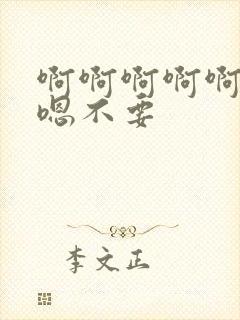 啊啊啊啊啊
嗯不要
李文正